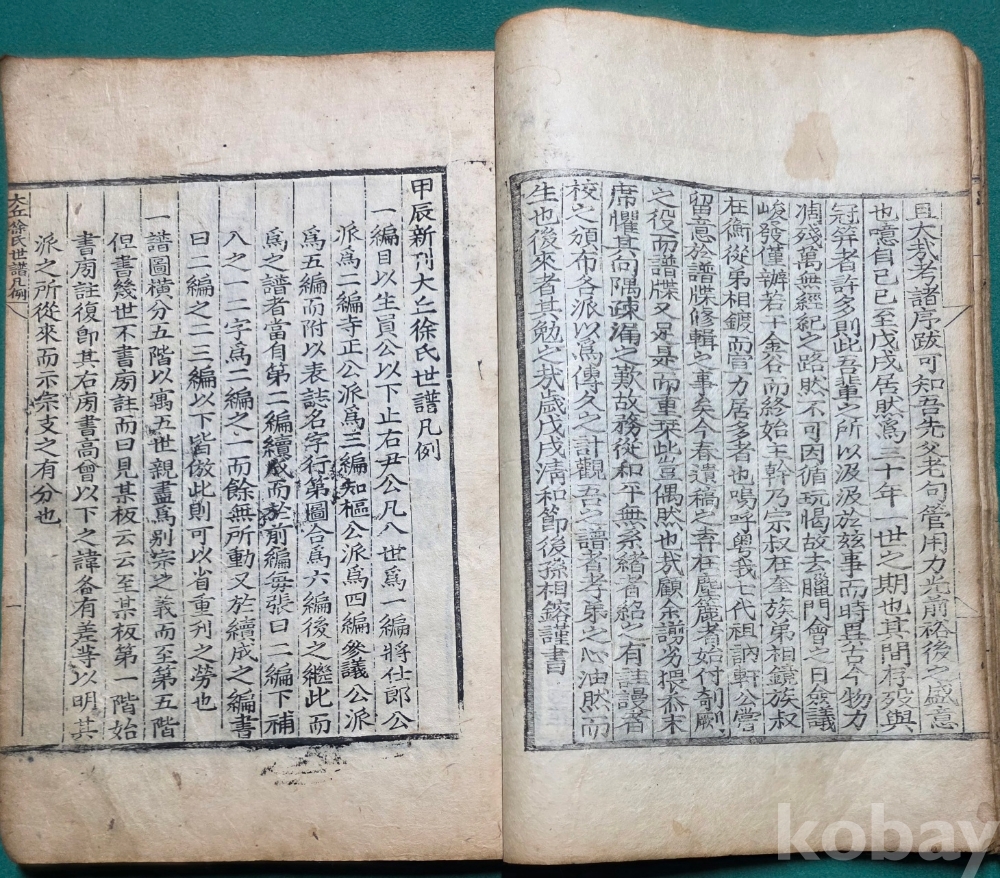 且大哉考諸序跋可知吾先父老句管用力光前裕後之盛意
也噫自己巳至戊戌居然爲三十年一世之期也其間存歿與
冠笄者許多則此吾輩之所以汲汲於玆事而時異古今物力
凋殘萬無經紀之路然不可因循玩愒故去臘門會之日僉議
峻發僅辦若干金谷而終始主幹乃宗叔在奎族弟相鏡族叔
在衡從弟相鍍而宣力居多者也嗚呼粤我七代祖訥軒公嘗
留意於譜牒修輯之事矣今春遺稿之弆在塵簏者始付剞劂
之役而譜牒又足是而重栞此豈偶然也哉顧余謭劣猥忝末
席懼其向隅疎漏之歎故務從和平無系緖者紹之有註謾者
校之頒布各派以爲傳久之計觀吾之譜者孝弟之心油然而
生也後來者其勉之哉歲戊戌淸和節後孫相鎔謹書
甲辰新刊大丘徐氏世譜凡例
一編目以生員公以下止右尹公凡八世爲一編將仕郞公
派爲二編寺正公派爲三編知樞公派爲四編參議公派
爲五編而附以表誌名字行第圖合爲六編後之繼此而
爲之譜者當自第二編續成而於前編每張曰二編下補
入之一二字爲二編之一而餘無所動又於續成之編書
曰二編之二三編以下皆倣此則可以省重刊之勞也
一譜圖橫分五階以寓五世親盡爲別宗之義而至第五階
但書幾世不書旁註而曰見某板云云至某板第一階始
書旁註復卽其右旁書高曾以下之諱备有差等以明其
派之所從來而示宗支之有分也
大丘徐氏世譜凡例
一
kobay